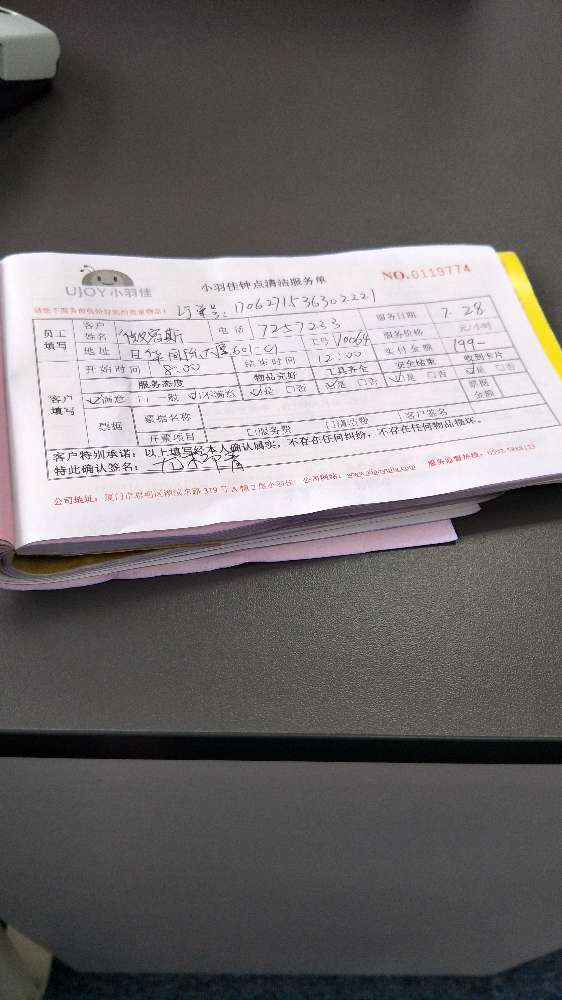 UJOY小羽佳
小羽佳钟点清洁服务单
NO.0119774
订单号: 1706271536302221
员工填写
客户姓名 电话 7257233 服务日期 7.28
地址 601-01 工号 10064 服务价格 元/小时
开始时间 8:00 结束时间 12:00 实付金额 199-
客户填写
服务态度 物品完好 工具齐全 安全结束 收到卡片
☑满意 □一般 □不满意 ☑是 □否 ☑是 □否 ☑是 □否 ☑是 □否
票据 票据名称 票据金额
开票项目 [ ]服务费 [ ]清洁费 客户签名
客户特别承诺:以上填写经本人确认属实,不存在任何纠纷,不存在任何物品损坏。
特此确认签名:
公司地址:厦门市思明区 319号A幢2楼小羽佳 公司网站: 服务监督热线: